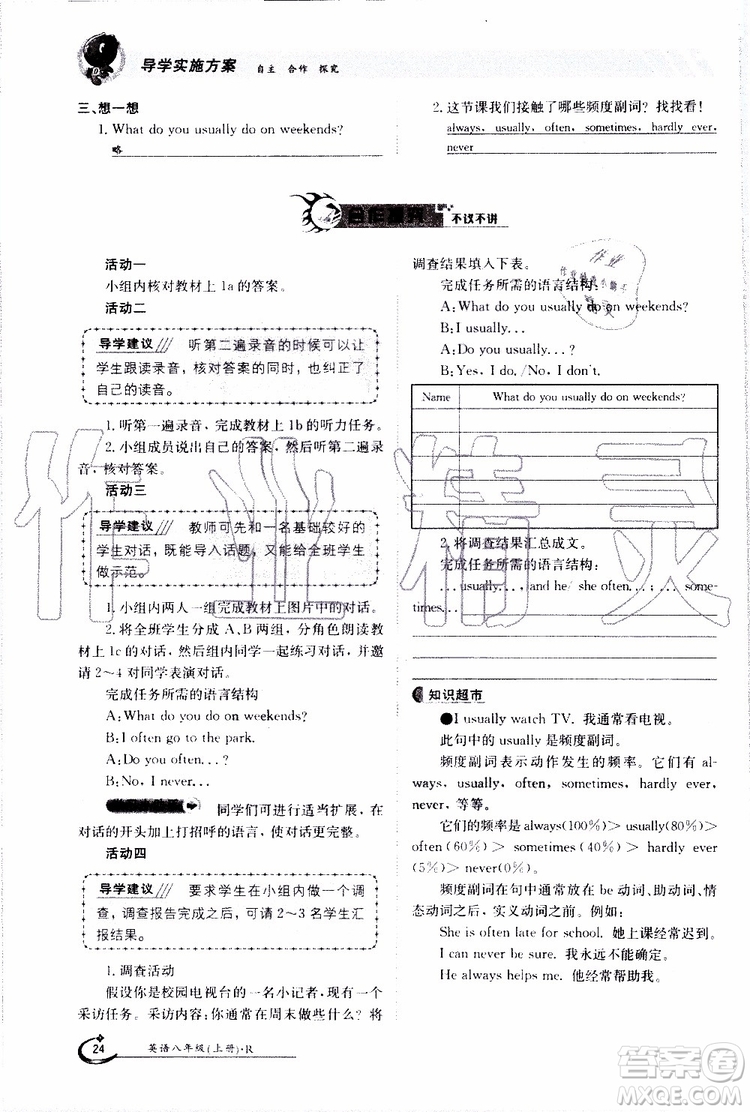 导学实施方案 自主 合作 探究
三、想一想
1. What do you usually do on weekends?
略
2. 这节课我们接触了哪些频度副词? 找找看!
always, usually, often, sometimes, hardly ever,
never
不议不讲
活动一
小组内核对教材上 1a 的答案。
活动二
导学建议 听第二遍录音的时候可以让
学生跟读录音,核对答案的同时,也可纠正了
自己的读音。
1. 听第一遍录音,完成教材上 1b 的听力任务。
2. 小组成员说出自己的答案,然后听第二遍录
音,核对答案。
活动三
导学建议 教师可先和一名基础较好的
学生对话,既能导入话题,又能给全班学生
做示范。
1. 小组内两人一组完成教材上图片中的对话。
2. 将全班学生分成 A、B 两组,分角色朗读教
材上 1c 的对话,然后组内同学一起练习对话,并
邀请 2～4 对同学表演对话。
完成任务所需的语言结构
A: What do you usually do on weekends?
B: I often go to the park.
A: Do you often...?
B: No, I never...
同学们可进行适当扩展,在
对话的开头加上打招呼的语言,使对话更完整。
活动四
导学建议 要求学生在小组内做一个调
查,调查报告完成之后,可请 2～3 名学生汇
报结果。
1. 调查活动
假设你是校园电视台的一名小记者,现在进行
采访任务。你通常在周末做些什么? 将
调查结果填入下表。
完成任务所需的语言结构:
A: What do you usually do on weekends?
B: I usually...
A: Do you often...?
B: Yes, I do. /No, I don't.
Name What do you usually do on weekends?
2. 将调查结果汇总成文。
完成任务所需的语言结构:
... usually..., and he / she often...; ... some-
times...
知识超市
●I usually watch TV. 我通常看电视。
此句中的 usually 是频度副词。
频度副词表示动作发生的频率。我们有: al-
ways, usually, often, sometimes, hardly ever,
never, 等等。
它们的频率是 always(100%)＞usually(80%)＞
often (60%)＞ sometimes (40%)＞ hardly ever
(5%)＞never(0%)。
频度副词在句中通常放在 be 动词、助动词、情
态动词之后,实义动词之前。例如:
She is often late for school. 她上课经常迟到。
I can never be sure. 我永远不能确定。
He always helps me. 他经常帮助我。
24 英语八年级(上册)·R
作业精灵
答案圈
MXQE.COM